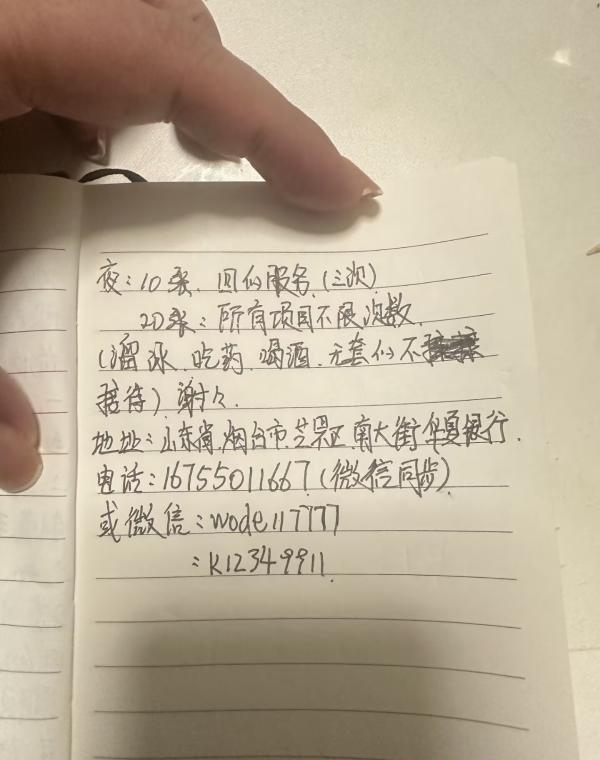 夜：10张．回似服务．(三次)
20张：所有项目不限次数．
(溜冰．吃药．喝酒．无套似不
接待) 谢谢．
地址：山东省．烟台市．芝罘区．南大街．华夏银行．
电话：16755011667 (微信同步)
或微信：wode117777
：k12349911．